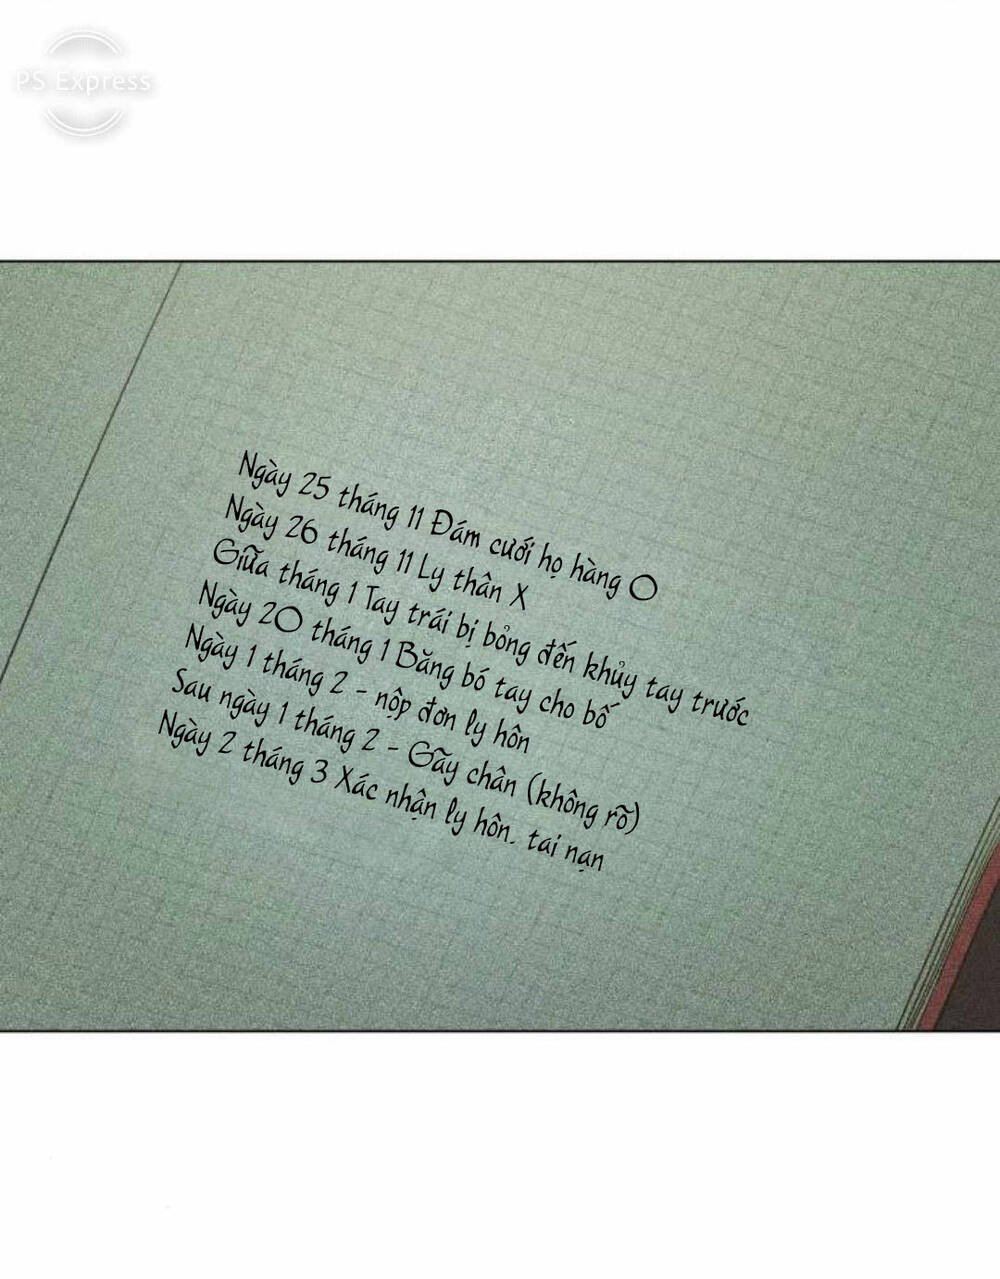 PS Express
Ngày 25 tháng 11 Đám cưới họ hàng O
Ngày 26 tháng 11 Ly thân X
Giữa tháng 1 Tay trái bị bỏng đến khủy tay trước
Ngày 20 tháng 1 Băng bó tay cho bố
Ngày 1 tháng 2 - nộp đơn ly hôn
Sau ngày 1 tháng 2 - Gãy chân (không rõ)
Ngày 2 tháng 3 Xác nhận ly hôn. tai nạn